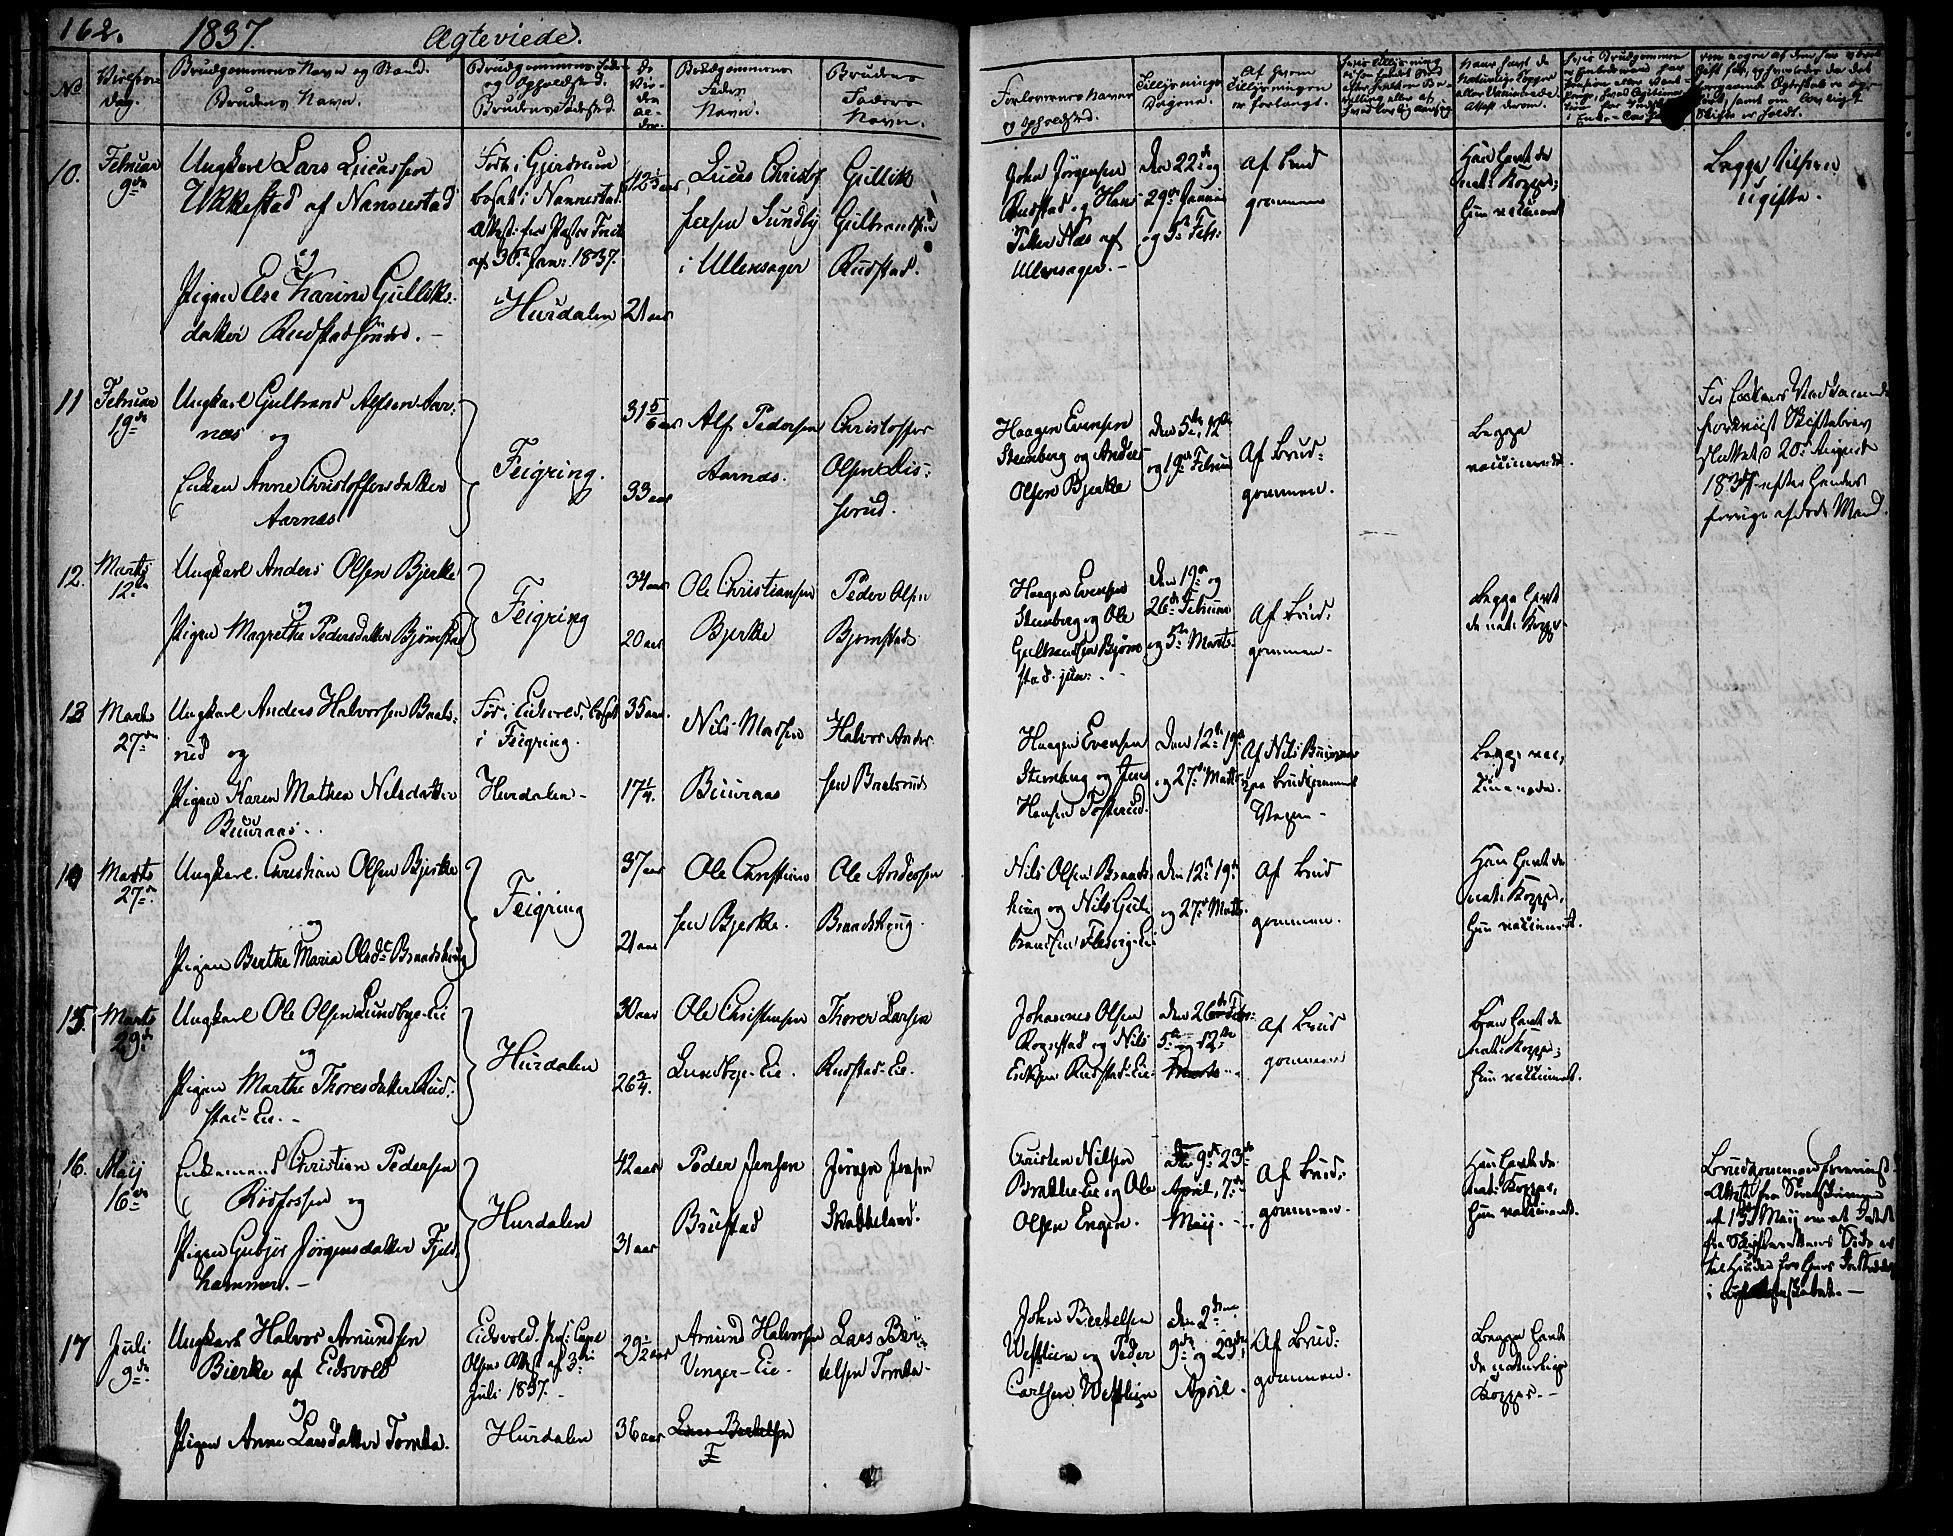 162. 1837. Ægteviede.
No Vielsens Dag. Brudgommens Navn og Stand. Brudens Navn. Brudgommens Føde- og Opholdsted. Brudens Fødested. Brudgommens Faders Navn. Brudens Faders Navn.
Forlovernes Navne og Opholdsted. Tillysnings Dagene. Af hvem Tillysningen er forlangt.
10. Februar 9de
Ungkarl Lars Lucassen
Ukkestad af Nannestad
og
Pigen Else Karine Gulliks-
datter Rudstadsøndre.
Født i Gjerdrum
bosat i Nannestad.
Attest fra Pastor
af 30te Jan: 1837.
Hurdalen
42 1/3 aar
21 aar
Lucas Christof
fersen Sundby
i Ullensager
Gullik
Gulbrandsen
Rudstad.
John Jörgensen
Rudstad og Hans
Peter Næs af
Ullensager.
Den 22de og
29de Januar
og 5te Febr:
Af Brud
gommen
Han havt de
nat: Kopper;
hun vaccineret
Begge tilforn
ugifte.
11 Februar 19de
Ungkarl Gulbrand Alfsen Aar-
næs og
Enken Anne Christoffersdatter
Aarnæs
Feigring.
31 5/6 aar
33 aar
Alf Pedersen
Aarnæs.
Christoffer
Olsen
Haagen Evensen
Steenberg og Anders
Olsen Bjerke
den 5te, 12te
og 19de Februar
Af Brud-
gommen.
Begge
vaccinerede.
forevist Skiftebrev
sluttet 20de August
efter hendes
forrige afdøde Mand.
12. Marts 12te
Ungkarl Anders Olsen Bjerke
og
Pigen Magrethe Pedersdatter Bjørnstad
Feigring
34 aar
20 aar
Ole Christiansen
Bjerke
Peder Olsen
Bjørnstad
Haagen Evensen
Steenberg og Ole
Gulbrandsen Bjørn-
stad jun:
den 19de og
26de Februar
og 5te Marts.
Af Brud-
gommen.
Begge havt
de nat: Kopper
13 Marts 27de
Ungkarl Anders Halvorsen Brats-
rud og
Pigen Karen Mathea Nilsdatter
Buuraas.
Fød i Eidsvold, bosat
i Feigring.
Hurdalen
35 aar.
17 1/4.
Nils Madsen
Buuraas
Halvor Ander
sen Bratsrud
Haagen Evensen
Steenberg og Jens
Hansen Tosterud.
Den 12te 19de
og 27de Marts
Af Nils Buuraas
paa Brudgommens
Vegne.
Begge vac-
cinerede.
14 Marts 27de
Ungkarl Christian Olsen Bjerke
og
Pigen Berthe Maria Olsdr Brandskoug
Feigring
37 aar
21 aar
Ole Christian
sen Bjerke.
Ole Andersen
Brandskoug.
Nils Olsen Brands-
koug og Nils Gul-
brandsen
den 12te 19de
og 27de Marts.
Af Brud
gommen.
Han havt de
nat: Kopper,
hun vaccineret.
15 Marts 29de
Ungkarl Ole Olsen Lundbye-Eie
og
Pigen Marthe Thoresdatter Rud-
stad-Eie.
Hurdalen
30 aar
26 3/4.
Ole Christensen
Lundbye-Eie.
Thorer Larsen
Rudstad-Eie.
Johannes Olsen
Rognstad og Nils
Eriksen Rudstad-Eie
den 26de Febr:
5te og 12te
Marts.
Af Brud
gommen
Han havt de
nat: Kopper;
hun vaccineret.
16. Maij 16de
Enkemand Christian Pedersen
Rødfossen og
Pigen Gubjør Jørgensdatter Fjeld-
hammer.
Hurdalen
42 aar
31 aar
Peder Jensen
Brustad
Jørgen Jensen
Skabbeland.
Christen Nilsen
Brække-Eie og Ole
Olsen Engen.
Den 9de 23de
April, 7de
Maij.
Af Brud-
gommen.
Han havt de
nat: Kopper,
hun vaccineret.
Brudgommen forevist
Attest fra Sorenskriveren
af 13de Maij om at Intet
fra Skifterettens Side er
til Hinder for hans Indtrædelse
i Ægteskabet.
17 Juli 9de
Ungkarl Halvor Amundsen
Bierke af Eidsvold
og
Pigen Anne Larsdatter Tomta.
Eidsvold.
Olsens Attest af 3die
Juli 1837.
Hurdalen
29 1/2 aar
36 aar
Amund Halvorsen
Venger-Eie
Lars Bertelsen
Lars Ber-
telsen Tomta.
John Bertelsen
Westlien og Peder
Carlsen Westlien
den 2den
9de og 23de
April.
Af Brud-
gommen.
Begge havt
de naturlige
Kopper.